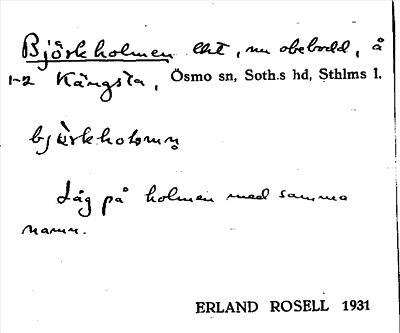 Björkholmen lht, nu obebodd, å
1-2 Kängsta, Ösmo sn, Soth.s hd, Sthlms l.
Låg på holmen med samma
namn.
ERLAND ROSELL 1931